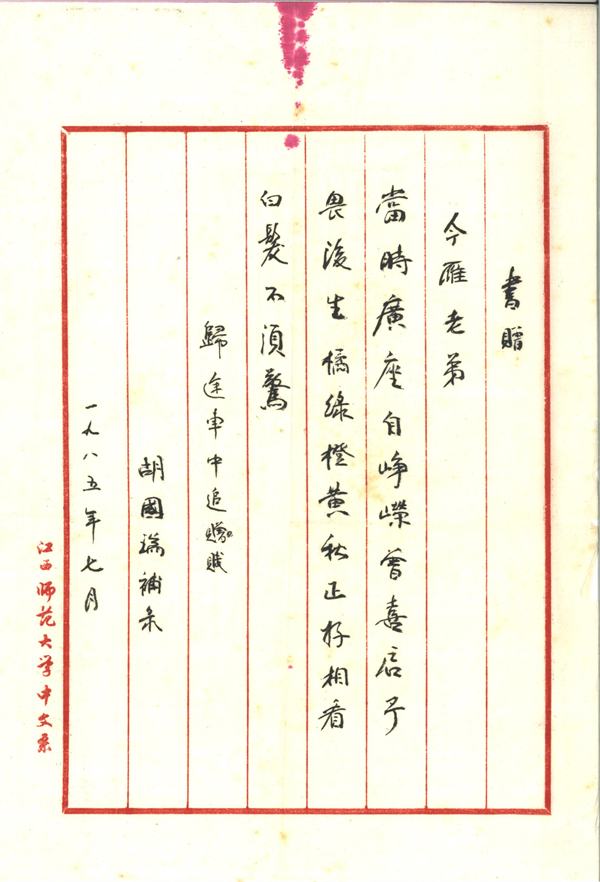 書贈
今雁老弟
當時廣座自崢嶸曾喜启予
畏後生橘綠橙黄秋正好相看
白髮不須驚
歸途車中追
胡國瑞補录
一九八五年七月
江西师范大学中文系